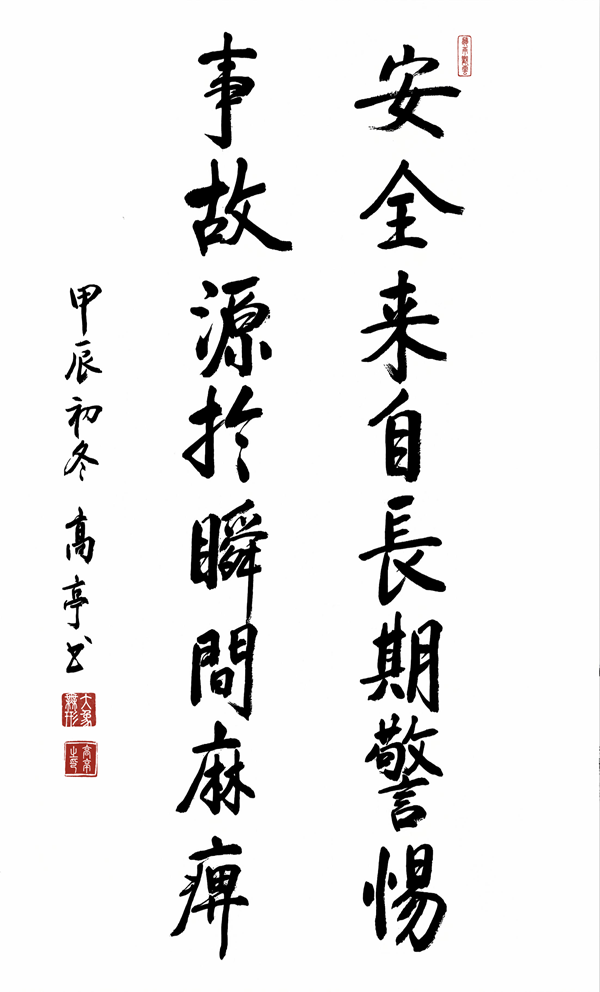 安全来自長期警惕
事故源於瞬間麻痺
甲辰初冬 高亭书
大象無形
高亭之印